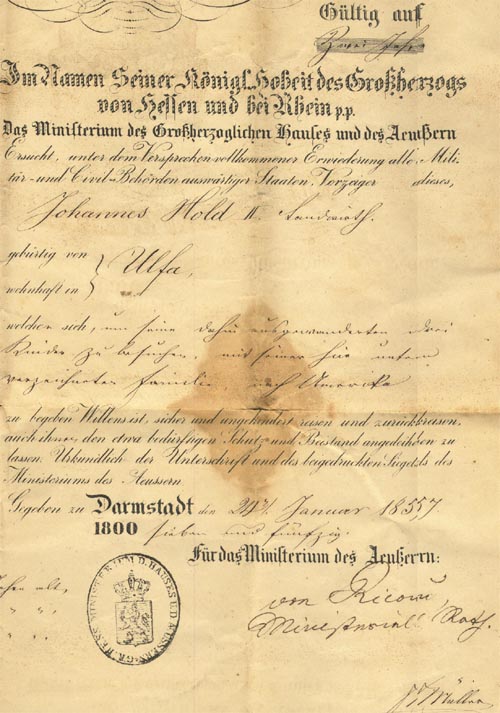 Gültig auf
Zwei Jahr
Im Namen Seiner Königl. Hoheit des Großherzogs
von Hessen und bei Rhein p.p.
Das Ministerium des Großherzoglichen Hauses und des Aeußern
Ersucht, unter dem Versprechen vollkommener Erwiederung alle Mili-
tär- und Civil-Behörden auswärtiger Staaten, Vorzeiger dieses,
Johannes Hold II. Landwirth.
gebürtig von
wohnhaft in
Ulfa,
welcher sich, um seine dahin ausgewanderten drei
Kinder zu besuchen, mit seiner hier unten
verzeichneten Familie, nach Amerika
zu begeben Willens ist, sicher und ungehindert reisen und zurückreisen,
auch ihnen den etwa bedürftigen Schutz und Beistand angedeihen zu
lassen. Urkundlich der Unterschrift und des beigedruckten Siegels des
Ministeriums des Aeussern.
Gegeben zu Darmstadt den 24t. Januar 1857.
1800 sieben und fünfzig.
Für das Ministerium des Aeußerrn:
alt,
" "
" "
GR. HESS. MINISTERIUM D. HAUSES UD. AEUSSERN
von Ricou
Ministerial Rath.
Müller